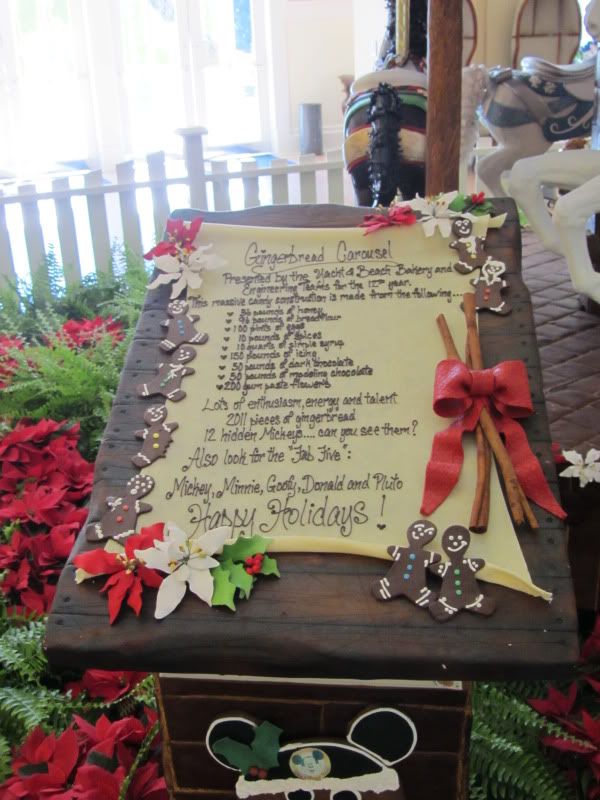 Gingerbread Carousel
Presented by the Yacht & Beach Bakery and
Engineering Teams for the 12th year.
This massive candy construction is made from the following...
36 pounds of honey
96 pounds of bread flour
100 pints of eggs
10 pounds of spices
10 quarts of simple syrup
150 pounds of icing
50 pounds of dark chocolate
50 pounds of modeling chocolate
200 gum paste flowers
Lots of enthusiasm, energy and talent
2011 pieces of gingerbread
12 hidden Mickeys.... can you see them?
Also look for the "Fab Five":
Mickey, Minnie, Goofy, Donald and Pluto
Happy Holidays!